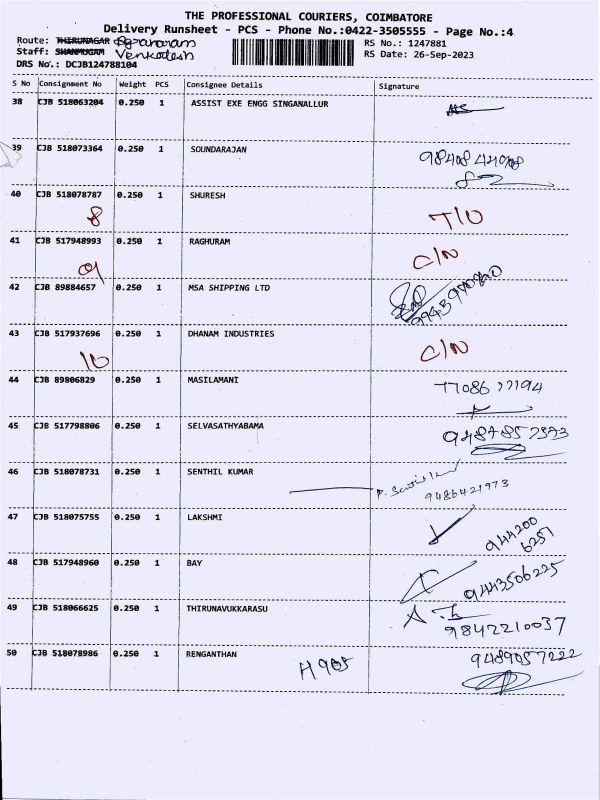 THE PROFESSIONAL COURIERS, COIMBATORE
Delivery Runsheet - PCS - Phone No.:0422-3505555 - Page No.:4
Route: THIRUNAGAR Agraharam
RS No.: 1247881
Staff: SHANMUGAM Venkadesh
RS Date: 26-Sep-2023
DRS No.: DCJB124788104
S No Consignment No Weight PCS Consignee Details Signature
38 CJB 518063204 0.250 1 ASSIST EXE ENGG SINGANALLUR
39 CJB 518073364 0.250 1 SOUNDARAJAN
40 CJB 518078787 0.250 1 SHURESH
8 T/O
41 CJB 517948993 0.250 1 RAGHURAM C/N
9
42 CJB 89884657 0.250 1 MSA SHIPPING LTD
43 CJB 517937696 0.250 1 DHANAM INDUSTRIES C/N
10
44 CJB 89806829 0.250 1 MASILAMANI
45 CJB 517798806 0.250 1 SELVASATHYABAMA
9487857573
46 CJB 518078731 0.250 1 SENTHIL KUMAR P. Senthil
9486421973
47 CJB 518075755 0.250 1 LAKSHMI
944200
6251
48 CJB 517948960 0.250 1 BAY
9443506225
49 CJB 518066625 0.250 1 THIRUNAVUKKARASU
9842210037
50 CJB 518078986 0.250 1 RENGANTHAN 9489057222
H 905